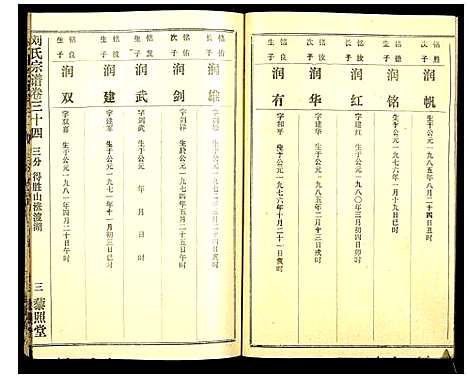 铭胜
生子
润帆
生于公元一九八五年八月二十四日丑时
铭德
生子
润铭
生于公元一九七六年一月十九日辰时
铭
长子
润红
字建红
生于公元一九八〇年三月初四日卯时
生子
润华
字建华
生于公元一九八五年二月十三日亥时
铭良
生子
润有
字和平
生于公元一九七六年十月二十一日亥时
铭佑
长子
润雄
字润洋
生于公元一九七一年三月二十日午时
次子
润剑
字剑祥
生于公元一九七四年五月二十五日午时
铭发
子
润武
字剑武
生于公元 年 月 日 时
铭波
生子
润建
生于公元一九七二年十一月初三日巳时
铭良
生子
润双
字双喜
生于公元一九八一年四月二十日午时
刘氏宗谱卷三十四
三分 得胜山涨渡湖
三
藜照堂